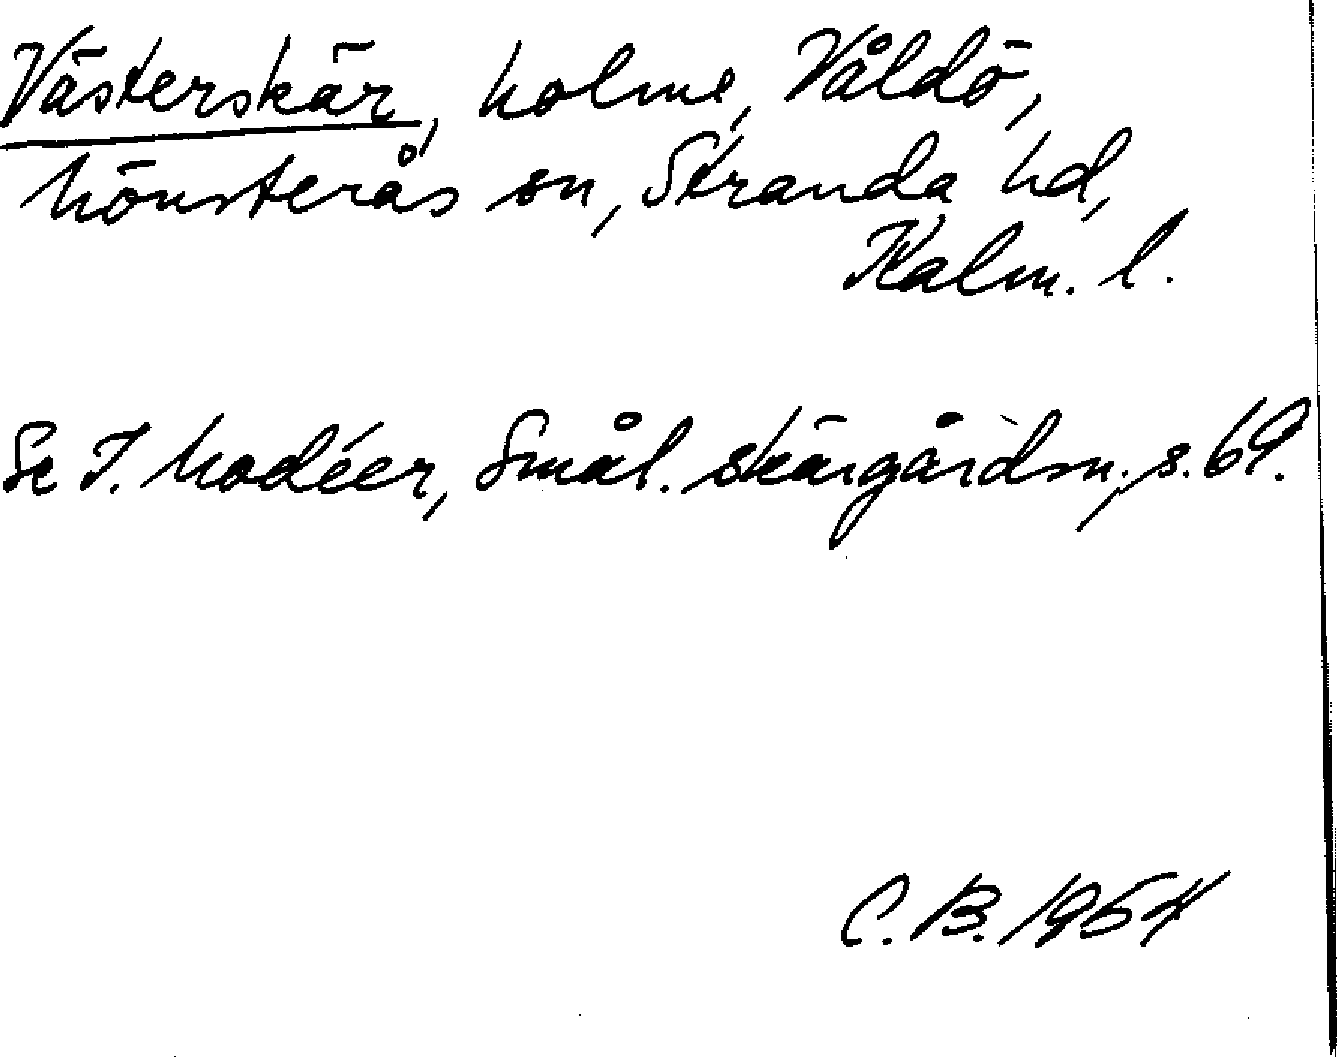 Västerskär, holme, Våldö,
Mönsterås sn, Stranda hd,
Kalm. l.
Se I. Modéer, Smål. skärgårdsn., s. 69.
C. B. 1954